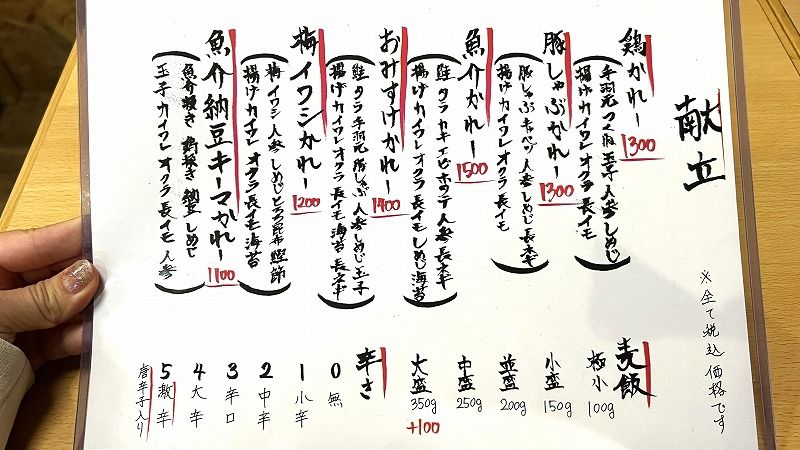 献立
鶏かれー 1300
手羽元 つくね 玉子 人参 しめじ
揚げ カイワレ オクラ 長イモ
豚しゃぶかれー 1300
豚しゃぶ キャベツ 人参 しめじ 長ネギ
揚げ カイワレ オクラ 長イモ
魚介かれー 1500
鮭 タラ カキ エビ ホタテ 人参 長ネギ
揚げ カイワレ オクラ 長イモ しめじ 海苔
おみすけかれー 1400
鮭 タラ 手羽元 豚しゃぶ 人参 しめじ 玉子
揚げ カイワレ オクラ 長イモ 海苔 長ネギ
梅イワシかれー 1200
梅 イワシ 人参 しめじ とろろ昆布 鰹節
揚げ カイワレ オクラ 長イモ 海苔
魚介納豆キーマかれー 1100
魚介挽き 鶏挽き 納豆 しめじ
玉子 カイワレ オクラ 長イモ 人参
※全て税込価格です
麦飯
極小 100g
小盛 150g
並盛 200g
中盛 250g
大盛 350g +100
辛さ
0 無
1 小辛
2 中辛
3 辛口
4 大辛
5 激辛
唐辛子入り